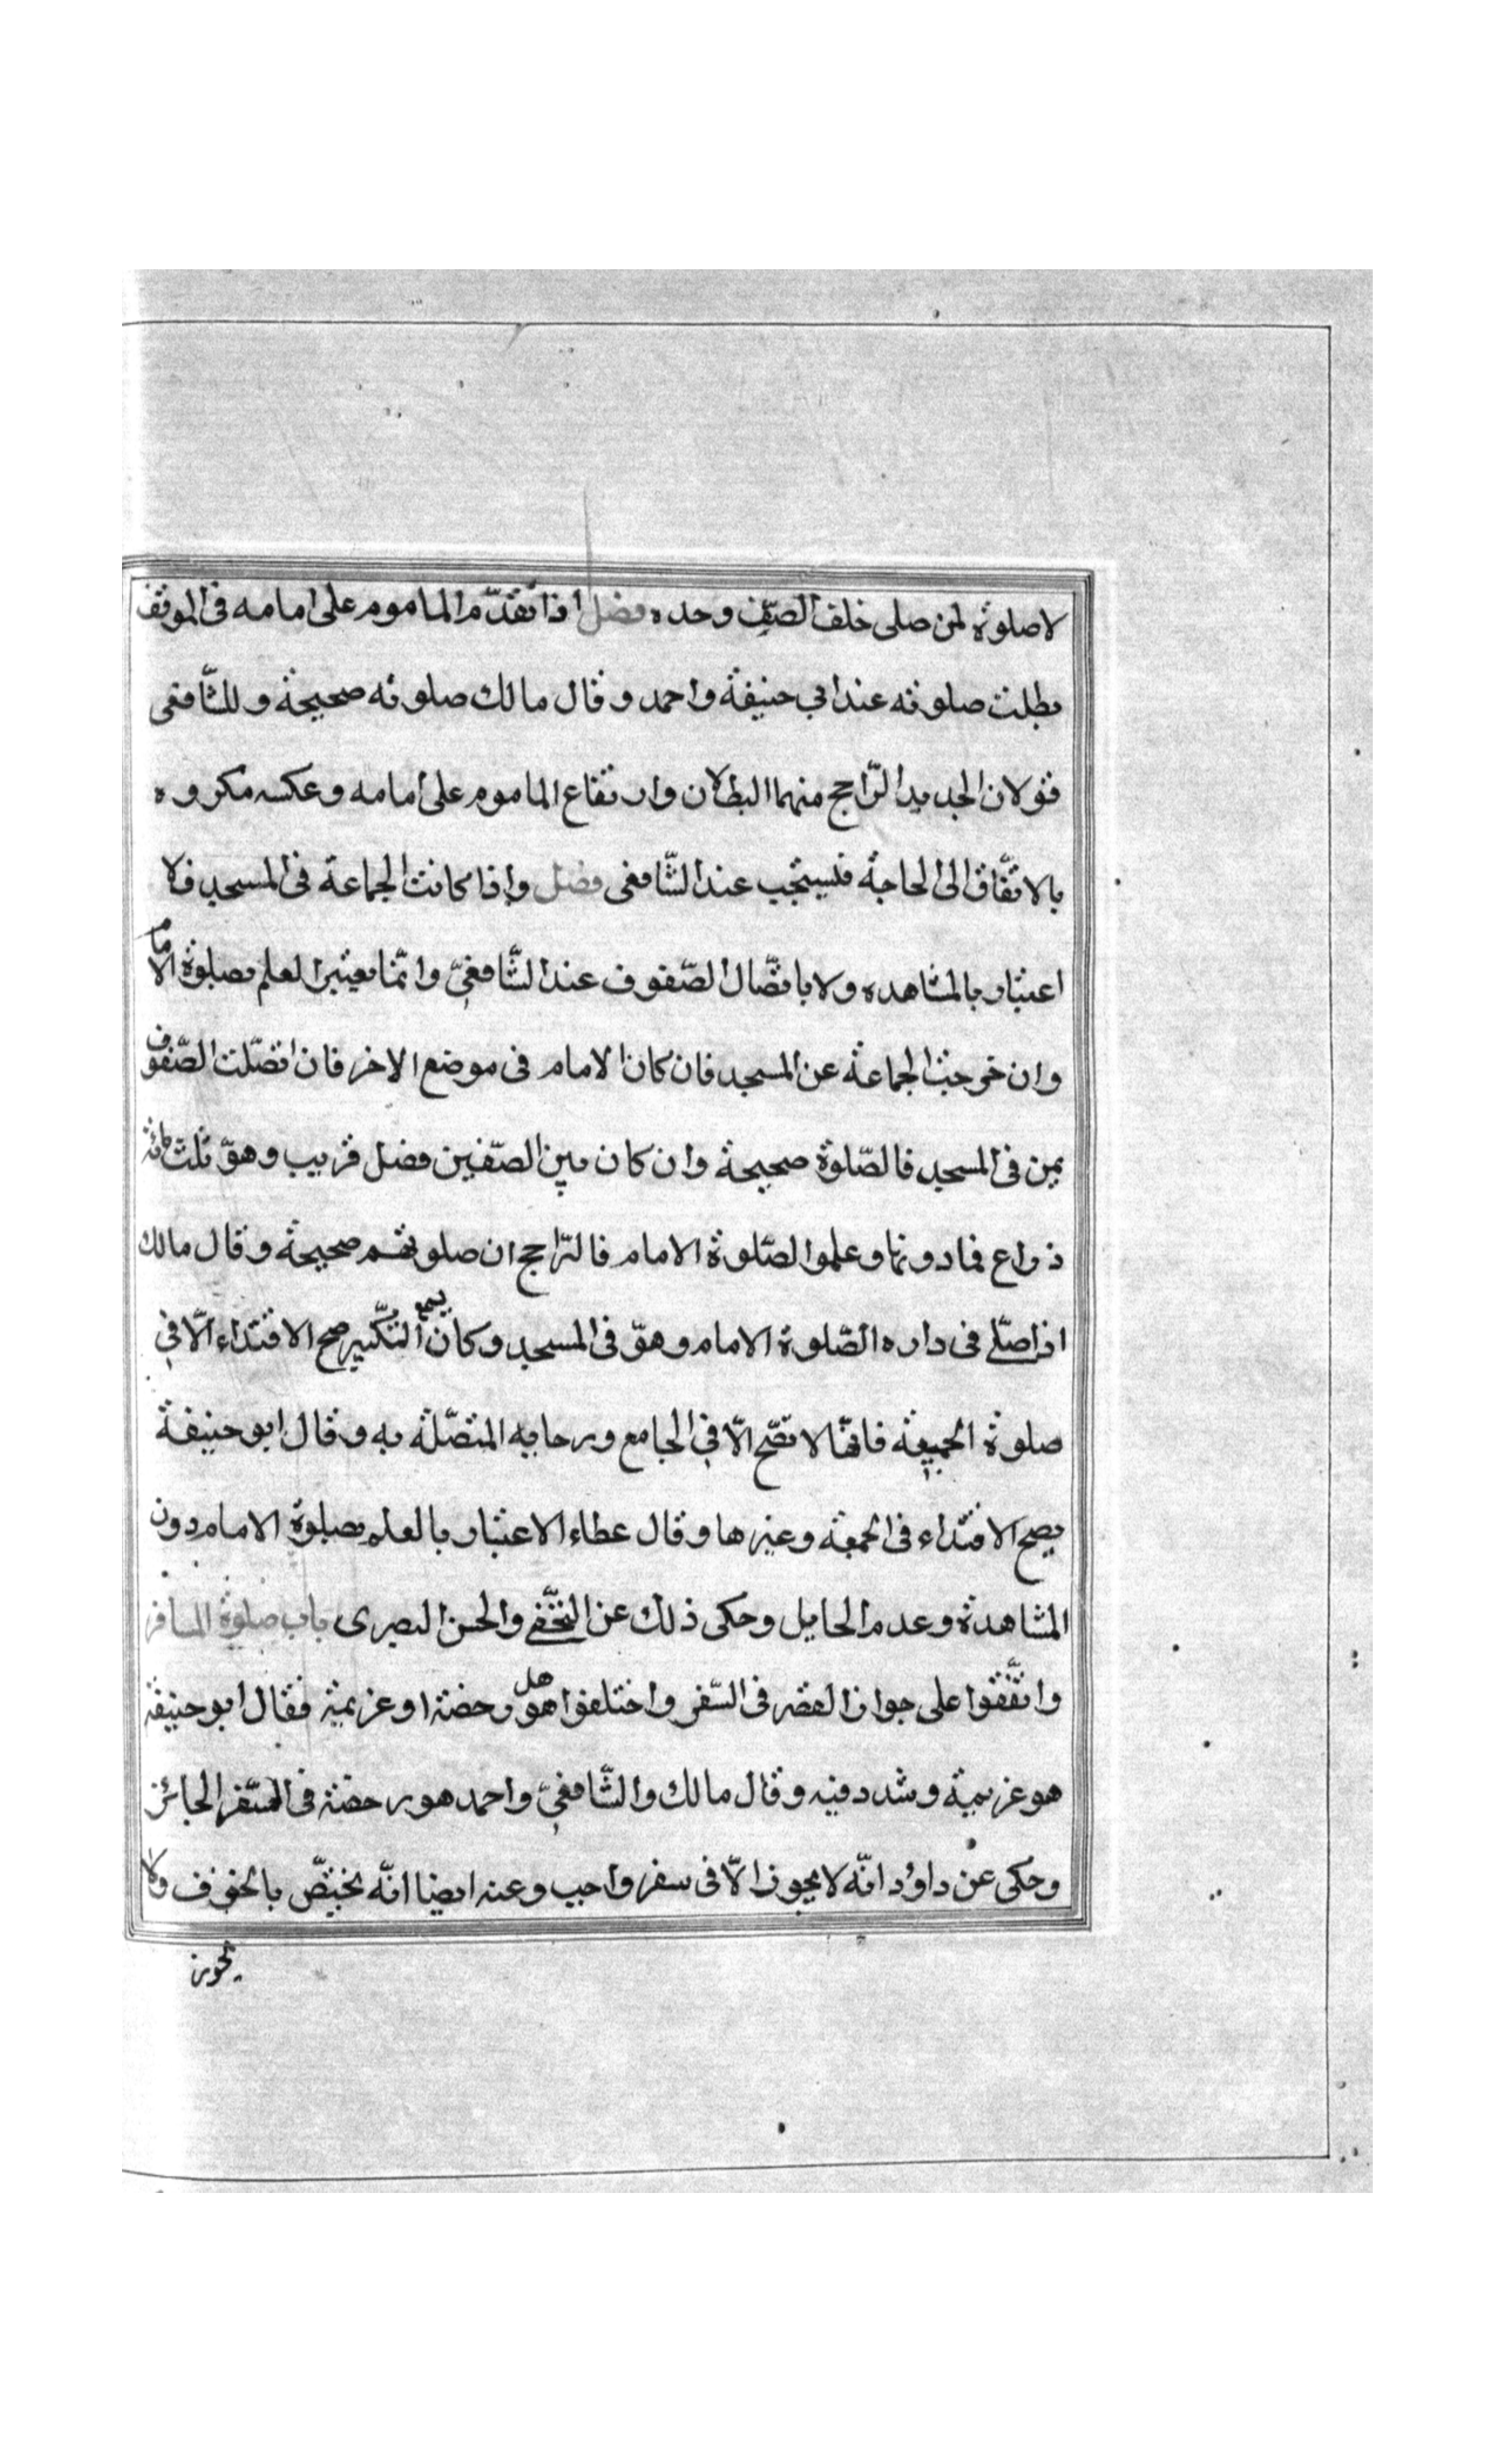 لا صلوة لمن صلى خلف الصّف وحده فصل اذا تقدّم الماموم على امامه فى الموقف
بطلت صلوته عند ابي حنيفة واحمد وقال مالك صلوته صحيحة وللشّافعى
قولان الجديد الرّاجح منهما البطلان وارتفاع الماموم على امامه وعكسه مكروه
بالاتّفاق الى الحاجة فليستحب عند الشّافعى فصل واذا كانت الجماعة فى المسجد فلا
اعتبار بالمشاهده ولا باتصّال الصّفوف عند الشّافعيّ وانّما يعتبر العلم بصلوة الامام
وان خرجت الجماعة عن المسجد فان كان الامام فى موضع الاخر فان اتصّلت الصّفوف
بمن فى المسجد فالصّلوة صحيحة وان كان بين الصّفين فصل قريب وهوّ ثلث مائة
ذراع فمادونها وعلموا الصّلوة الامام فالرّاجح ان صلوتهم صحيحة وقال مالك
اذا صلّى فى داره الصّلوة الامام وهوّ فى المسجد وكان يسمع التكّبير صح الاقتداء الّا في
صلوة الجمعة فانهّا لا تصّح الّا في الجامع ورحابه المتصّلة به وقال ابو حنيفة
يصح الاقتداء فى الجمعة وغيرها وقال عطاء الاعتبار بالعلم بصلوة الامام دون
المشاهدة وعدم الحايل وحكى ذلك عن النّخعي والحسن البصرى باب صلوة المسافر
واتّفقوا على جواز القصر فى السّفر واختلفوا هل هو رخصة او عزيمة فقال ابو حنيفة
هو عزيمة وشدد فيه وقال مالك والشّافعيّ واحمد هو رخصة فى السّفر الجائز
وحكى عن داؤد انّه لا يجوز الّا فى سفر واجب وعنه ايضا انّه يختصّ بالخوف ولا
يجوز